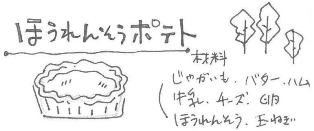 ほうれんそうポテト
材料
じゃがいも・バター・ハム
牛乳・チーズ・卵
ほうれんそう・玉ねぎ